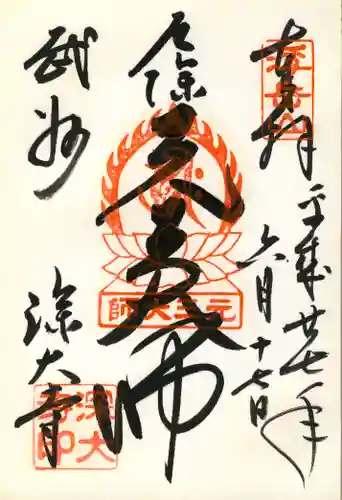 奉拝
平成廿七年
六月十七日
浮岳山
厄除
元三大師
元三大師
武州
深大寺
深大寺印